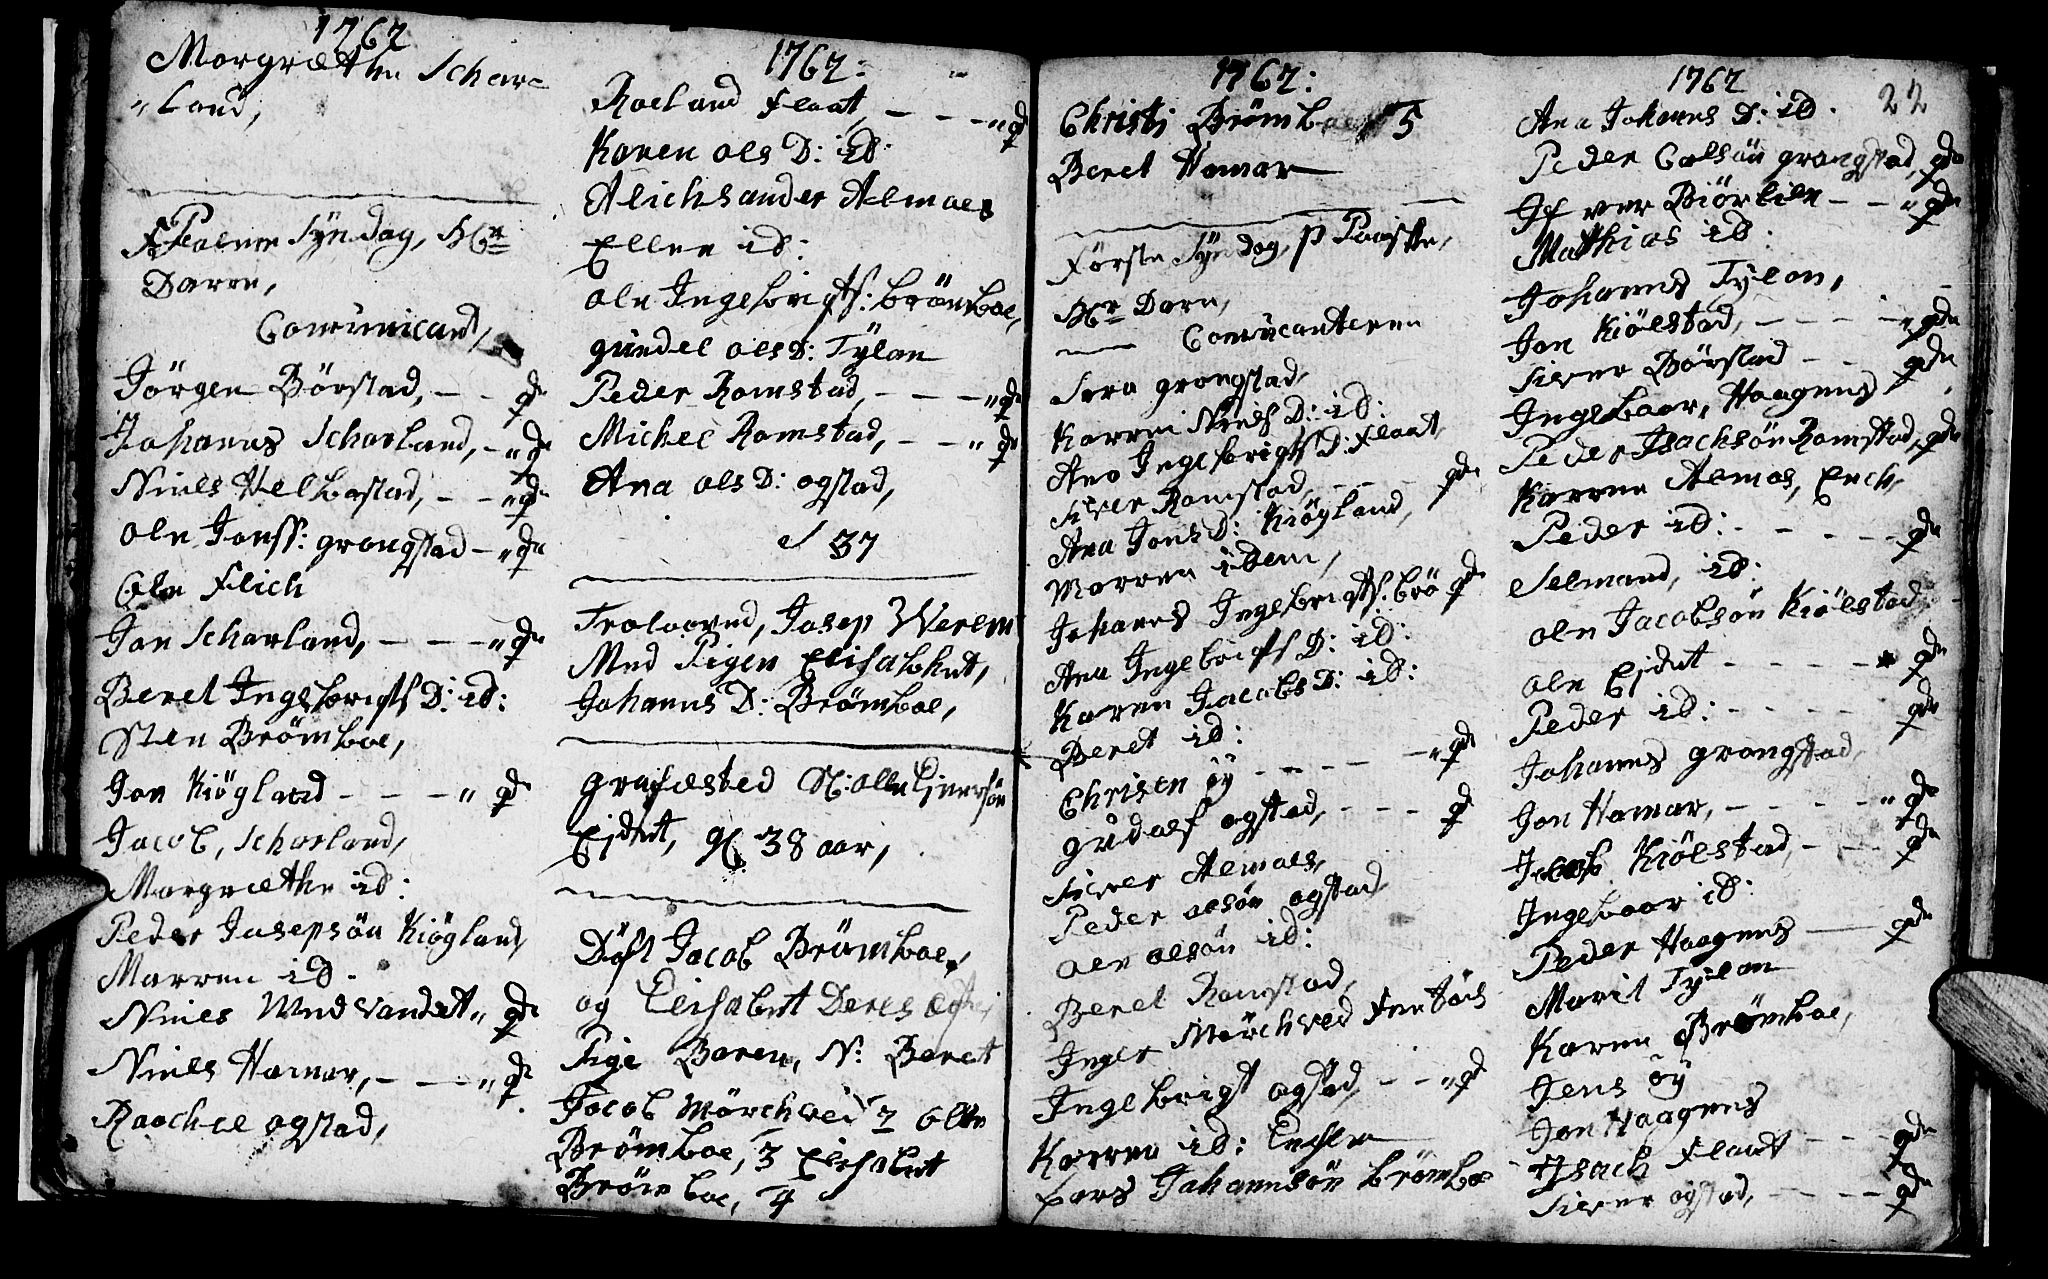 1762
Morgræthe Schar=
"land,
Palme Syndag, Hr
Darre,
Comunicant,
Jörgen Börstad, - - qde
Johanes Scharland, - " qde
Niels Helbostad, - - " qde
Ole Jonss: grongstad - " qde
Ole Flich
Jon Scharland, - - - " qde
Beret Ingebrigts D: id:
Sten Brömboe,
Jon Kiögland - - - " qde
Jacob, Scharland,
Morgræthe id:
Peder Jusepsön Kiögland,
Marren id.
Niels Wed Vandet " qde
Niels Hamar, - - - " qde
Raachel ogstad,
1762:
Roeland Flaat, - - - " qd
Karen ols D: id:
Alichsander Almaes
Ellen id:
Ole Ingebrigts: brömboe,
gundel ols D: Tylon
Peder Romstad, - - - " qd
Michel Romstad, - - " qd
Ana ols D: ogstad,
S 37
Trolovved, Josep Werem
Med Pigen Elisabhet,
Johanes D: Brömboe,
grafæsted Sl: olle Ejnersön
Ejdet, gl 38 aar,
Döft Jacob Brömboe,
og Elisabet Deres
Pige Baren, N: Beret
Jacob Mörchved 2 Olle
Brömboe, 3 Elisabet
Brömboe, 4
1762:
Christj Brömboe 5
Beret Hamar
Förste Syndag, p Paaske,
Hr Dare,
Comucanterne
Sara grongstad,
Karren Niels D: id:
Ane Ingebrigts D: Flaat
Siver Romstad, - - - qde
Ana Jons D: Kiögland,
Marren idem,
Johanes Ingebrigts. brö qde
Ana Ingebrigts D: id:
Karen Jacobs D: id:
Beret id:
Christen öy - - - - - " qde
Gudolf ogstad, - - - qd
Siver Almaes,
Peder olsön ogstad
Ole olsön id:
Beret Romstad,
Inger Mörchved
Ingebrigt ogstad, - - " qd
Karren id: Enchen
Lars Johansön brömboe
1762 22
Ana Johanes D: id.
Peder Colsön grongstad, qde
If ver Biörlien - - " qde
Mathias id:
Johanes Tylon,
Jon Kiölstad, - - - - " qde
Siver Börstad - - - qde
Ingeboor, Haagens
Peder Isachsön Romstad, qde
Karren Almos, Ench
Peder id: - - - - - qde
Selmand, id:
Ole Jacobsön Kiölstad
Ole Ejdet - - - - - qde
Peder id: - - - - - qde
Johanes grongstad,
Jon Hamar, - - - - " qde
Jacob Kiölstad, - - - qde
Ingeboor id:
Peder Haagens - qde
Marit Tylon
Karen Brömboe,
Jens öy
Jon Haagens
Isach Flaat - - - qde
Siver ogstad, - - - - qde